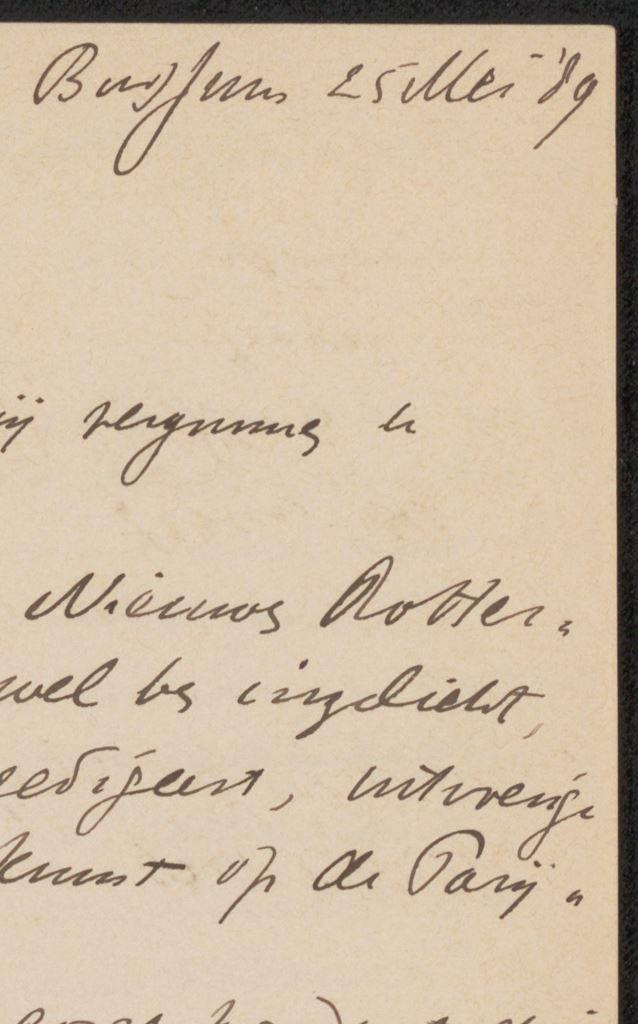 Bussum 25 Mei '89
ij vergunning te
Nieuwe Rotter„
wel be ingelicht,
uitvoerige
kunst op de Parij„